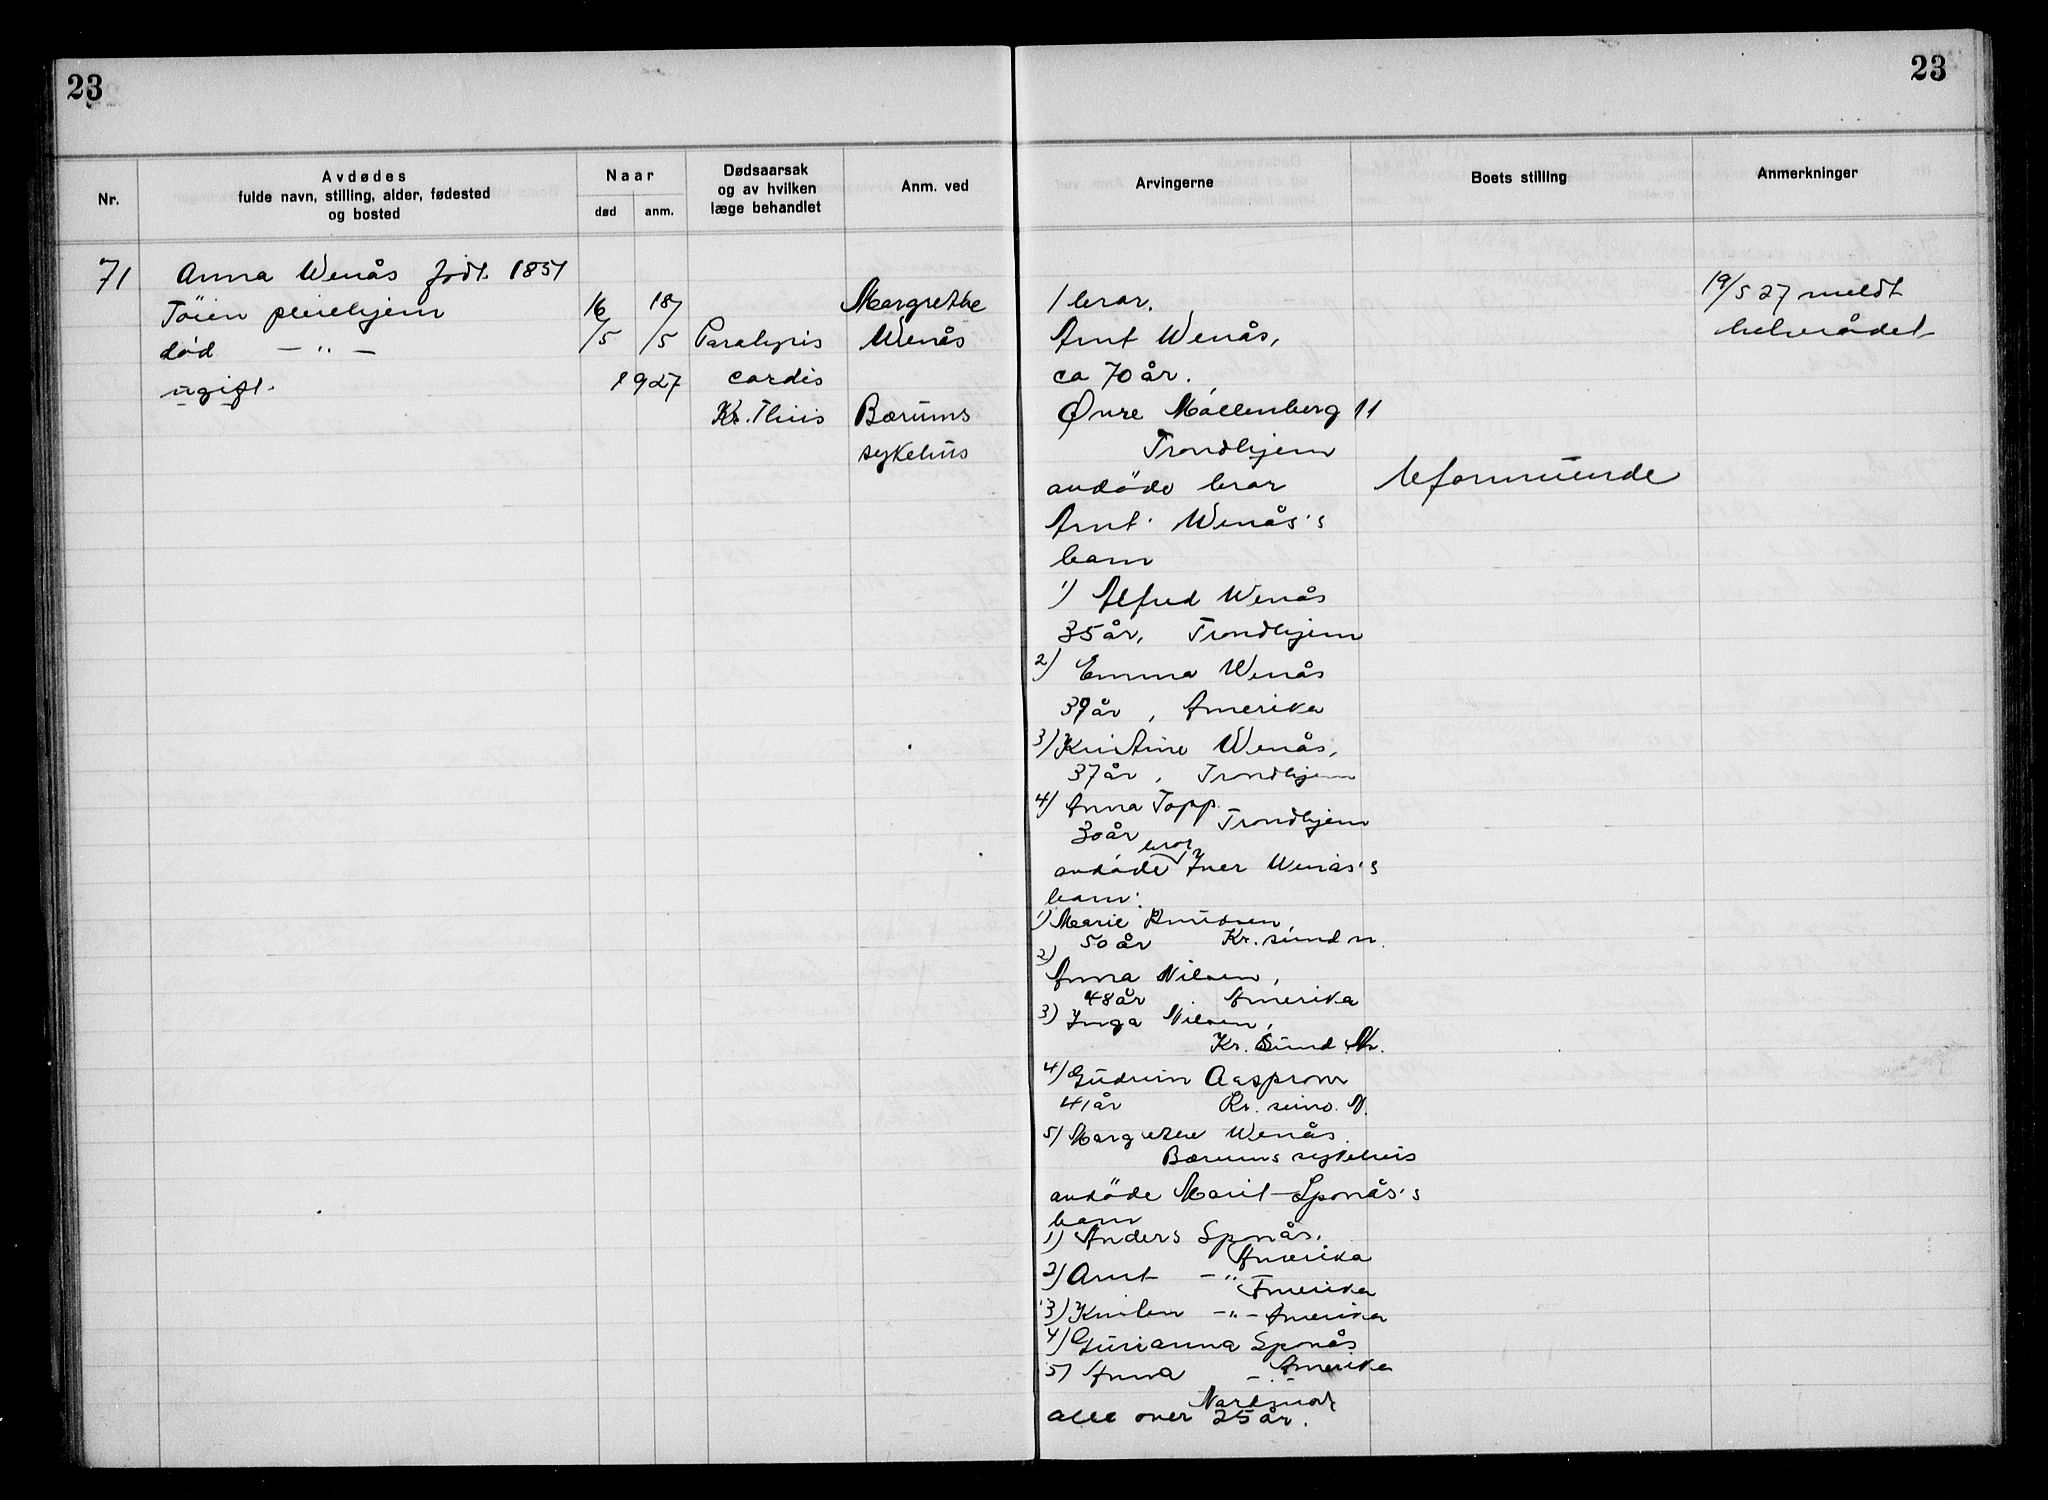 23
23
Nr.
Avdødes
fulde navn, stilling, alder, fødested
og bosted
Naar
død
anm.
Dødsaarsak
og av hvilken
læge behandlet
Anm. ved
Arvingerne
Boets stilling
Anmerkninger
71
Anna Wenås født 1851
Töien pleiehjem
død — " —
ugift.
16/5
18/5
1927
Paralysis
cordis
Kr. Thiis
Margrethe
Wenås
Bærums
sykehus
1 bror.
Arnt Wenås,
ca 70 år.
Øvre Möllenberg 11
Trondhjem
avdöde bror
Arnt Wenås's
barn
1) Alfred Wenås
35 år, Trondhjem
2) Emma Wenås
39 år, Amerika
3) Kristine Wenås,
37 år, Trondhjem
4) Anna Topp.
30 år Trondhjem
bror
avdöde Iver Wenås's
barn:
1) Marie Knudsen,
50 år Kr. sund n.
2)
Anna Nilsen,
48 år Amerika
3) Inga Nilsen,
Kr. Sund N.
4) Gudrun
41 år Kr. sund. N.
5) Margrethe Wenås.
Bærums sykehus
avdöde Marit Sponås's
barn
1) Anders Sponås,
Amerika
2) Arnt — " —
Amerika
3) — " — Amerika
4) Gurianna Sponås
Amerika
5) Anna — " —
alle over 25 år.
uformuende
19/5 27 meldt
helserådet